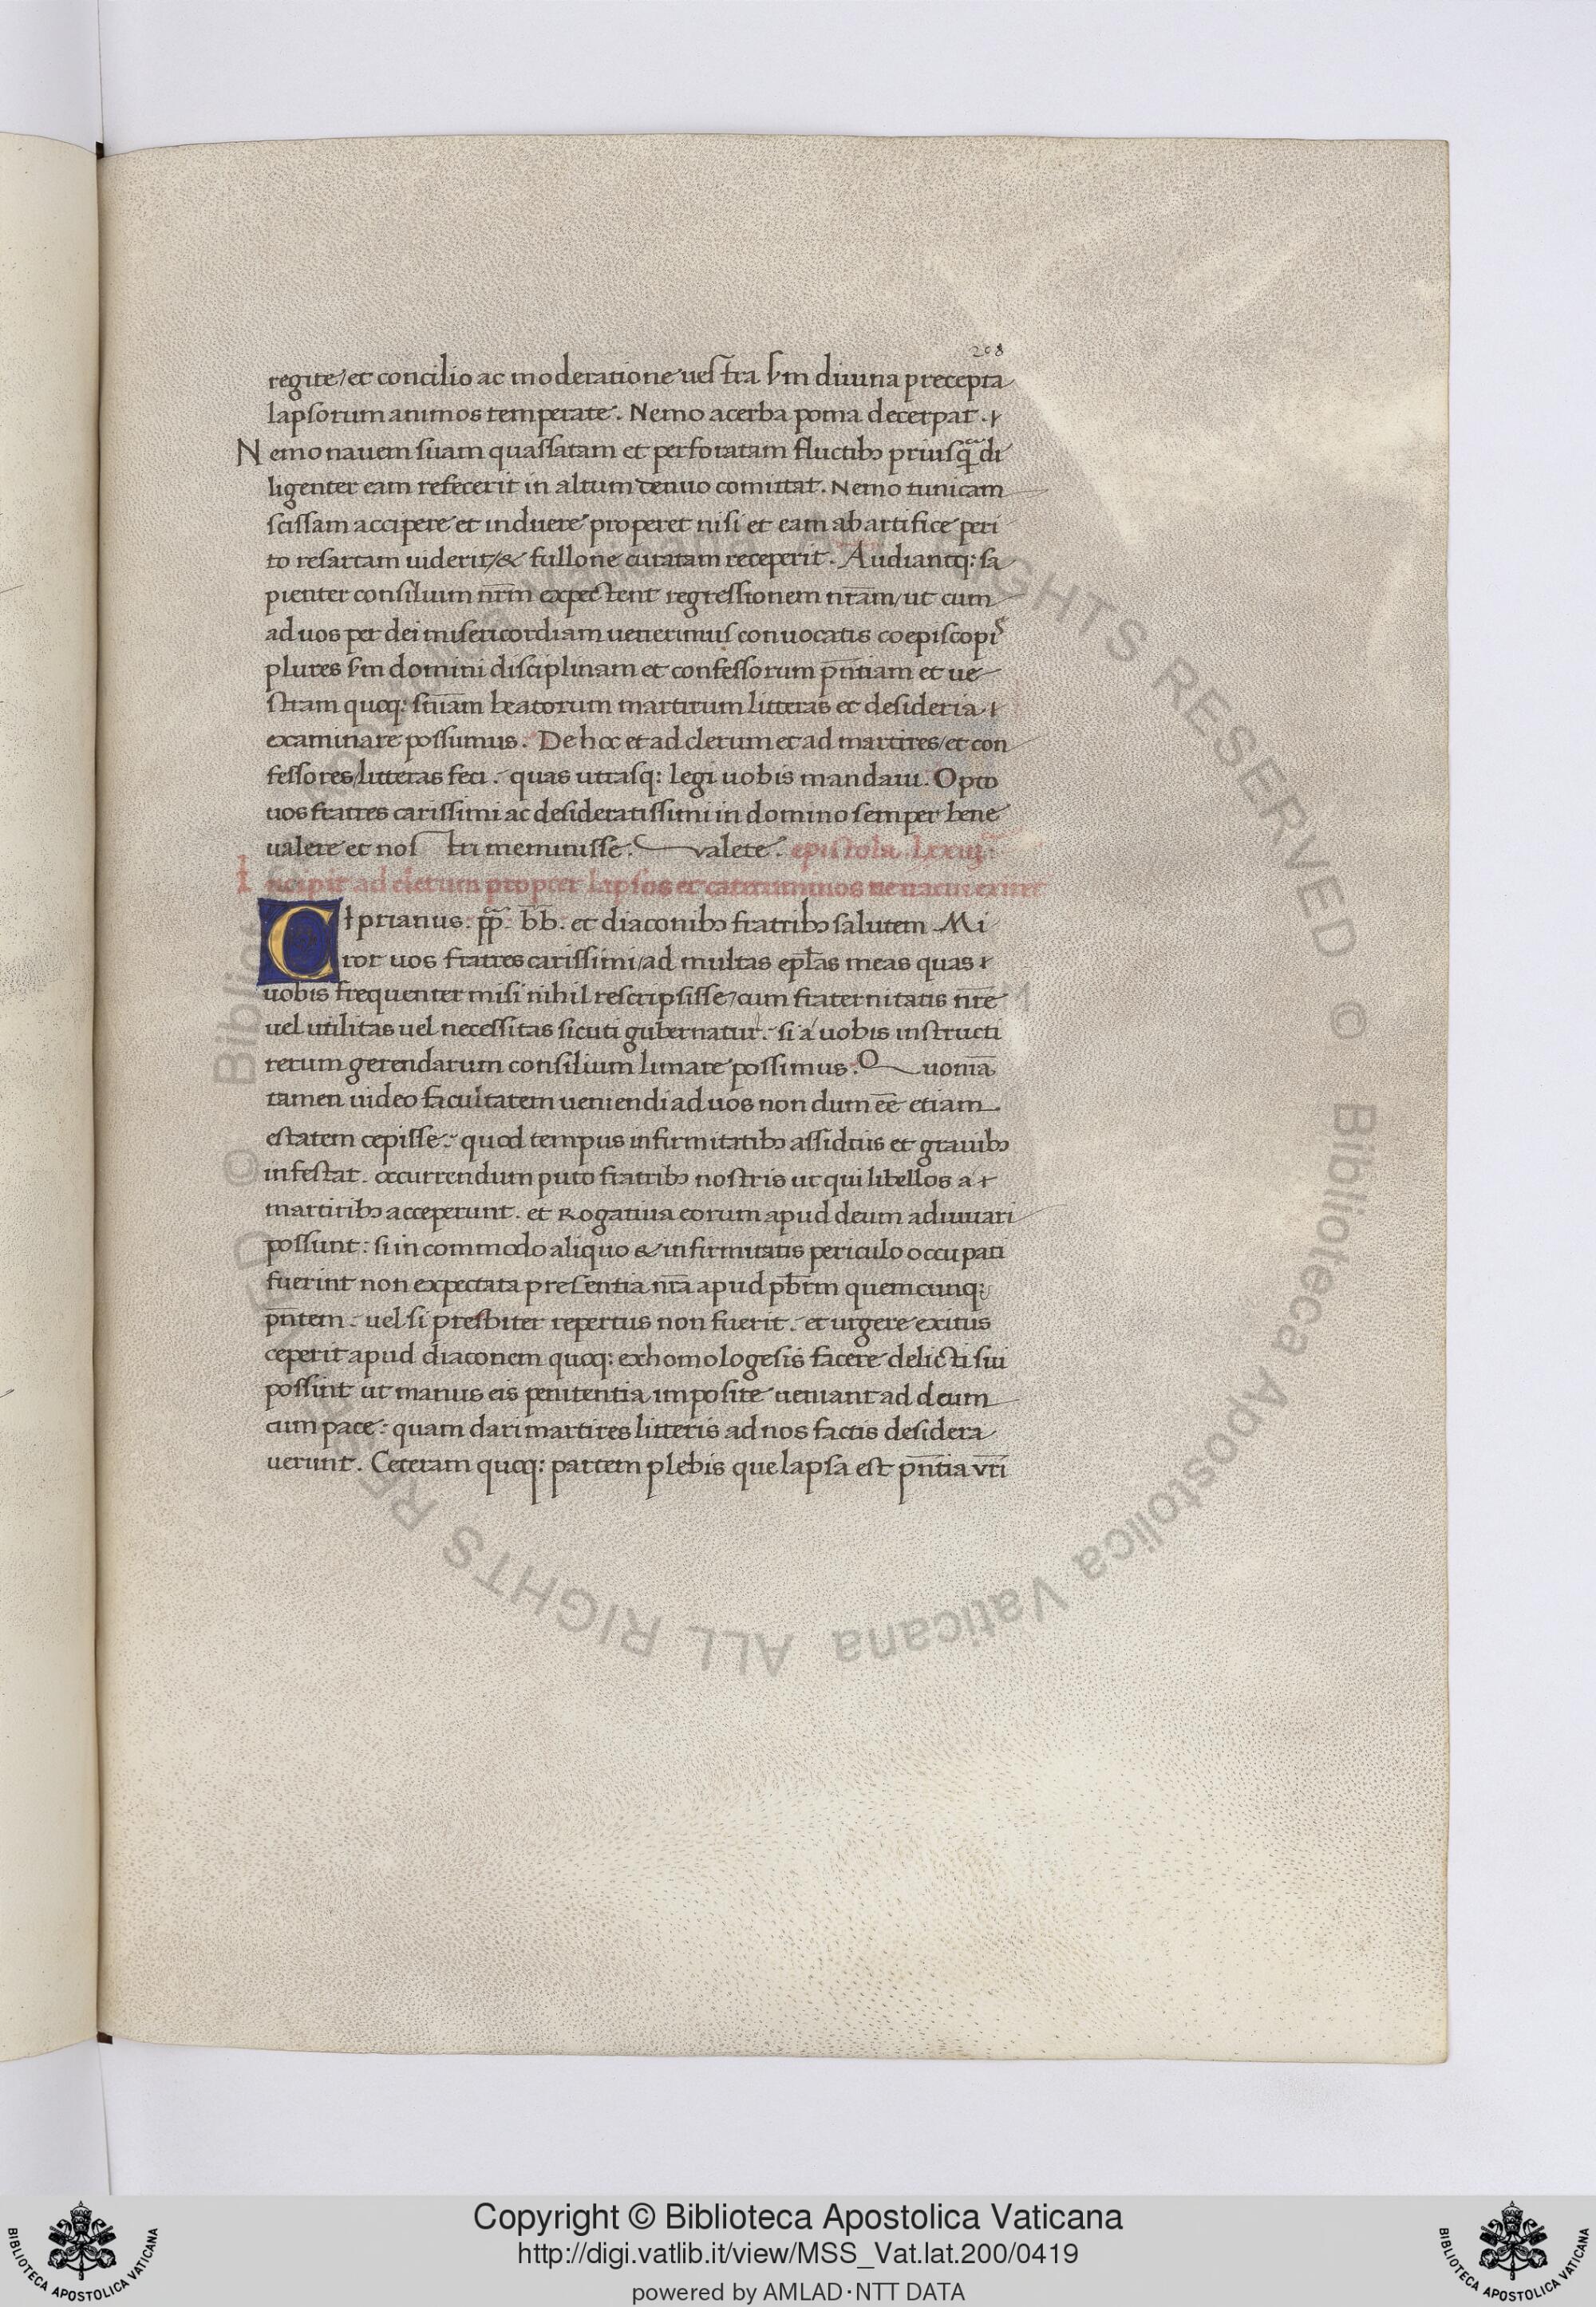 208
regite/et concilio ac moderatione uestra scdm diuina precepta
lapsorum animos temperate. Nemo acerba poma decerpat.
Nemo nauem suam quassatam et perforatam fluctibꝫ priusq̃ di
ligenter eam refecerit in altum denuo comittat. Nemo tunicam
scissam accipere et induere properet nisi et eam ab artifice peri
to resartam uiderit/& fullone curatam receperit. Audiantq: sa
pienter consilium nr̄m expectent regressionem nr̄am/ut cum
ad uos per dei misericordiam uenerimus conuocatis coepiscopis
plures domini disciplinam et confessorum pn̄tiam et ue
stram quoq: beatorum martirum litteras et desideria
examinare possumus. De hoc et ad clerum et ad martires/et con
fessores/litteras feci. quas utrasq: legi uobis mandaui. Opto
uos fratres carissimi ac desideratissimi in domino semper bene
ualere et nostri meminisse. valete. epistola. Lxxiij.
Incipit ad clerum propter lapsos et
Ciprianus. pp̃. b̄b̄. et diaconibꝫ fratribꝫ salutem. Mi
ror uos fratres carissimi/ad multas epl̄as meas quas
uobis frequenter misi nihil rescripsisse/cum fraternitatis nr̄e
uel utilitas uel necessitas sicuti gubernatur. si a uobis instructi
rerum gerendarum consilium limare possimus. Quoniā
tamen uideo facultatem ueniendi ad uos non dum eē etiam
estatem cepisse. quod tempus infirmitatibꝫ assiduis et grauibꝫ
infestat. occurrendum puto fratribꝫ nostris ut qui libellos a
martiribꝫ acceperunt. et Rogatiua eorum apud deum adiuuari
possunt: si in commodo aliquo & infirmitatis periculo occupati
fuerint non expectata presentia nr̄a apud pb̄rm quemcunq:
pn̄tem. uel si presbiter repertus non fuerit. et urgere exitus
ceperit apud diaconem quoq: exhomologesis facere delicti sui
possint ut manus eis penitentia imposite ueniant ad deum
cum pace. quam dari martires litteris ad nos factis desidera
uerunt. Ceteram quoq: partem plebis que lapsa est pn̄tia vr̄i
© Biblioteca Apostolica Vaticana ALL RIGHTS RESERVED © Biblioteca Apostolica Vaticana ALL RIGHTS RESERVED
Copyright © Biblioteca Apostolica Vaticana
http://digi.vatlib.it/view/MSS_Vat.lat.200/0419
powered by AMLAD·NTT DATA
BIBLIOTECA APOSTOLICA VATICANA
BIBLIOTECA APOSTOLICA VATICANA